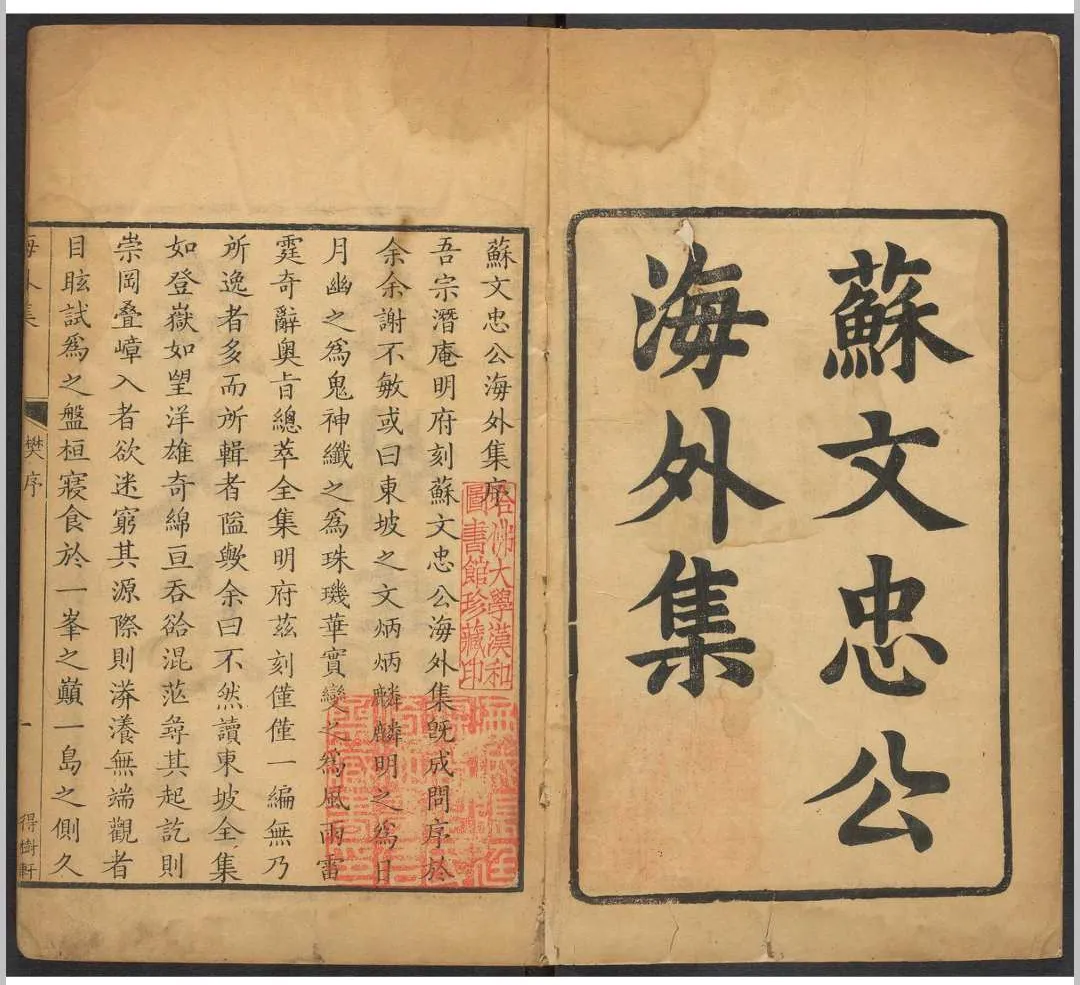 蘇文忠公
海外集
蘇文忠公海外集序
吾宗潛庵明府刻蘇文忠公海外集既成問序於
余余謝不敏或曰東坡之文炳炳麟麟明之為日
月幽之爲鬼神纖之爲珠璣華實變之爲風雨雷
霆奇辭奧旨總萃全集明府茲刻僅僅一編無乃
所逸者多而所輯者隘歟余曰不然讀東坡全集
如登嶽如望洋雄奇綿亘吞谽混茫尋其起訖則
崇岡叠嶂入者欲迷窮其源際則漭瀁無端觀者
目眩試爲之盤桓寢食於一峯之巔一島之側久
海外集
樊序
一
得樹軒
哈佛大學漢和
圖書館珍藏印